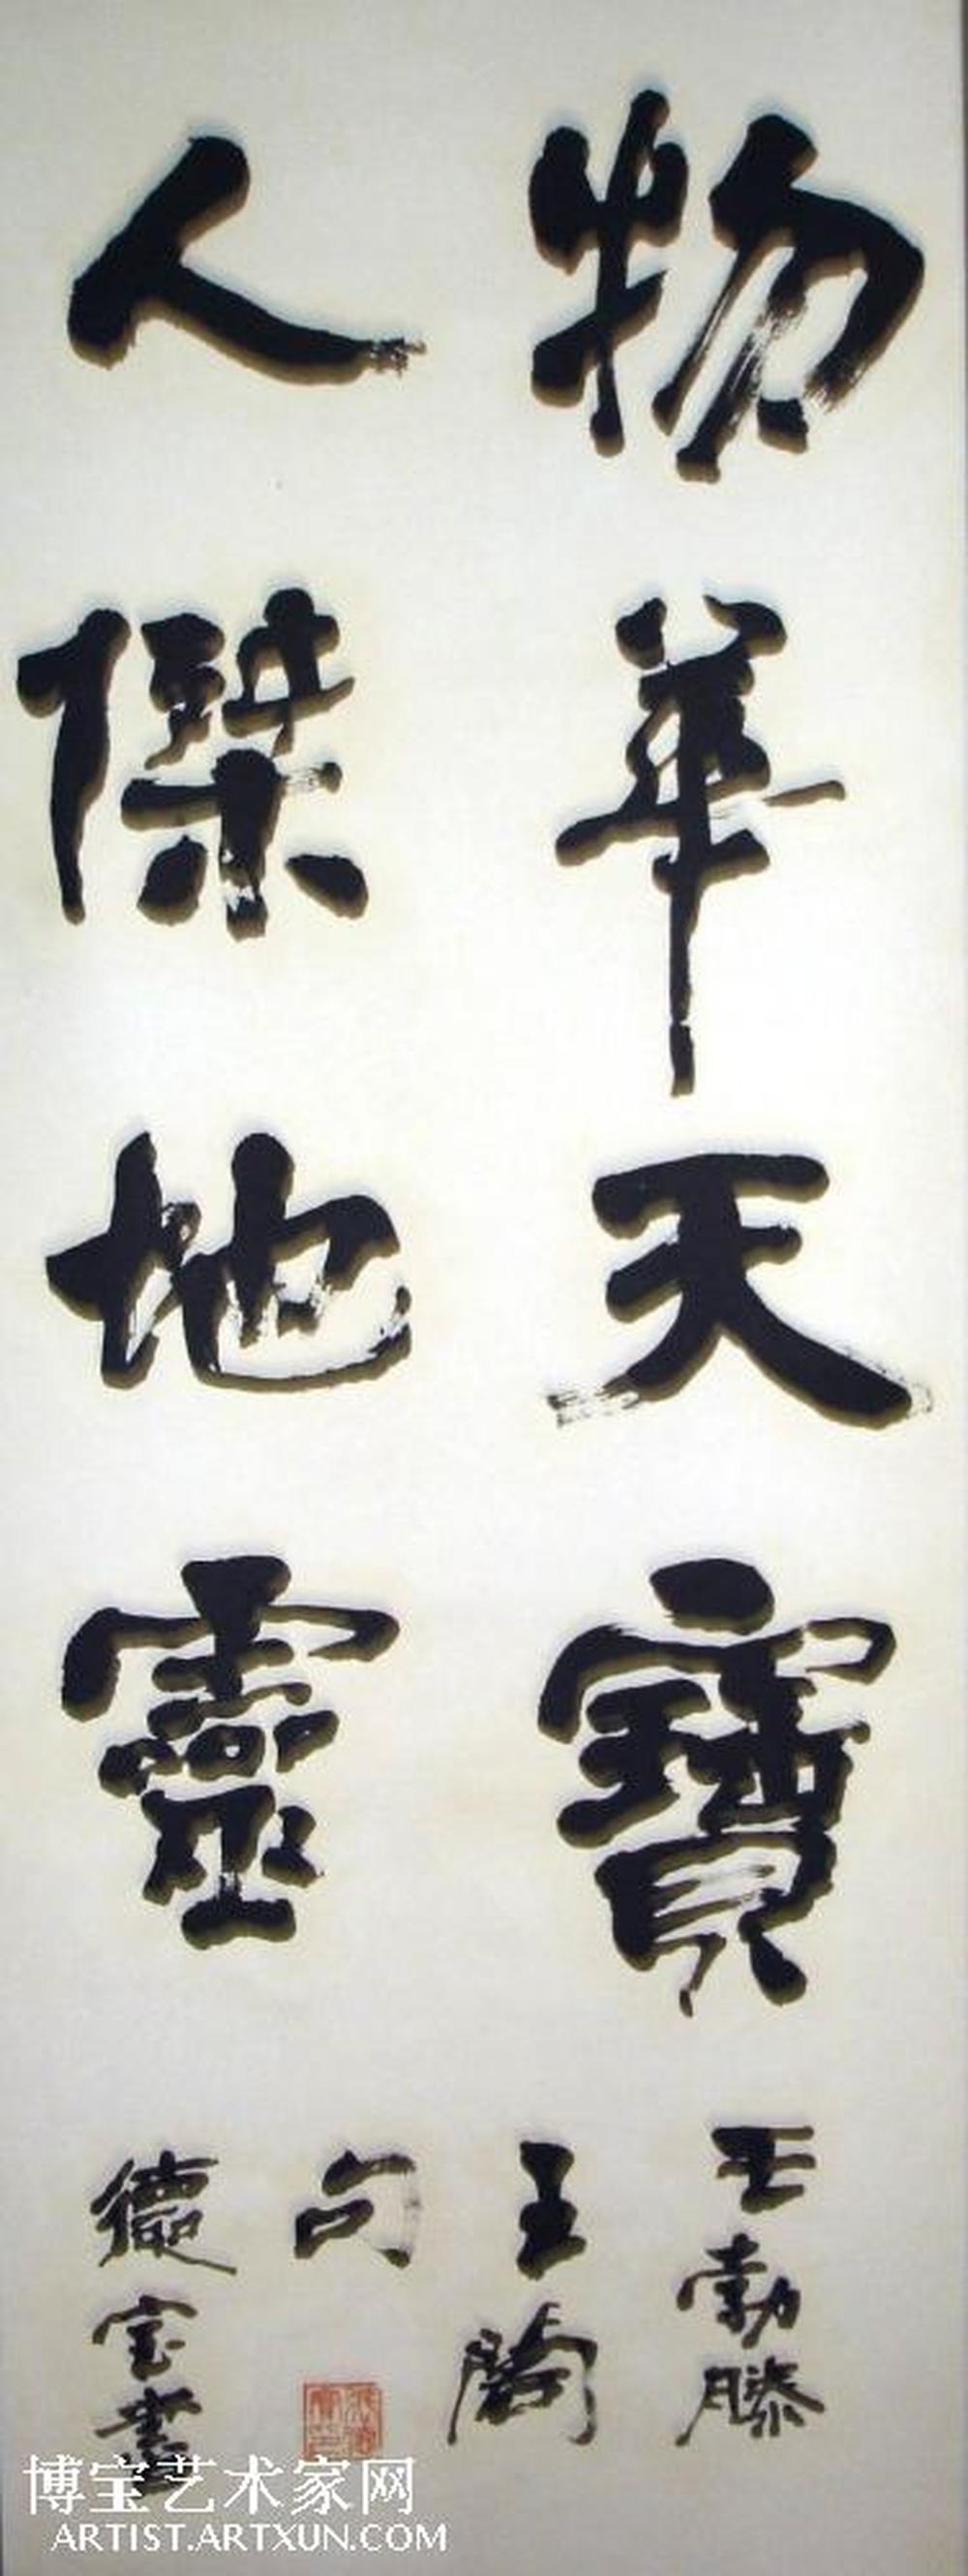 物華天寶
人傑地靈
王勃滕
王閣
句
德宝書
博宝艺术家网
ARTIST.ARTXUN.COM